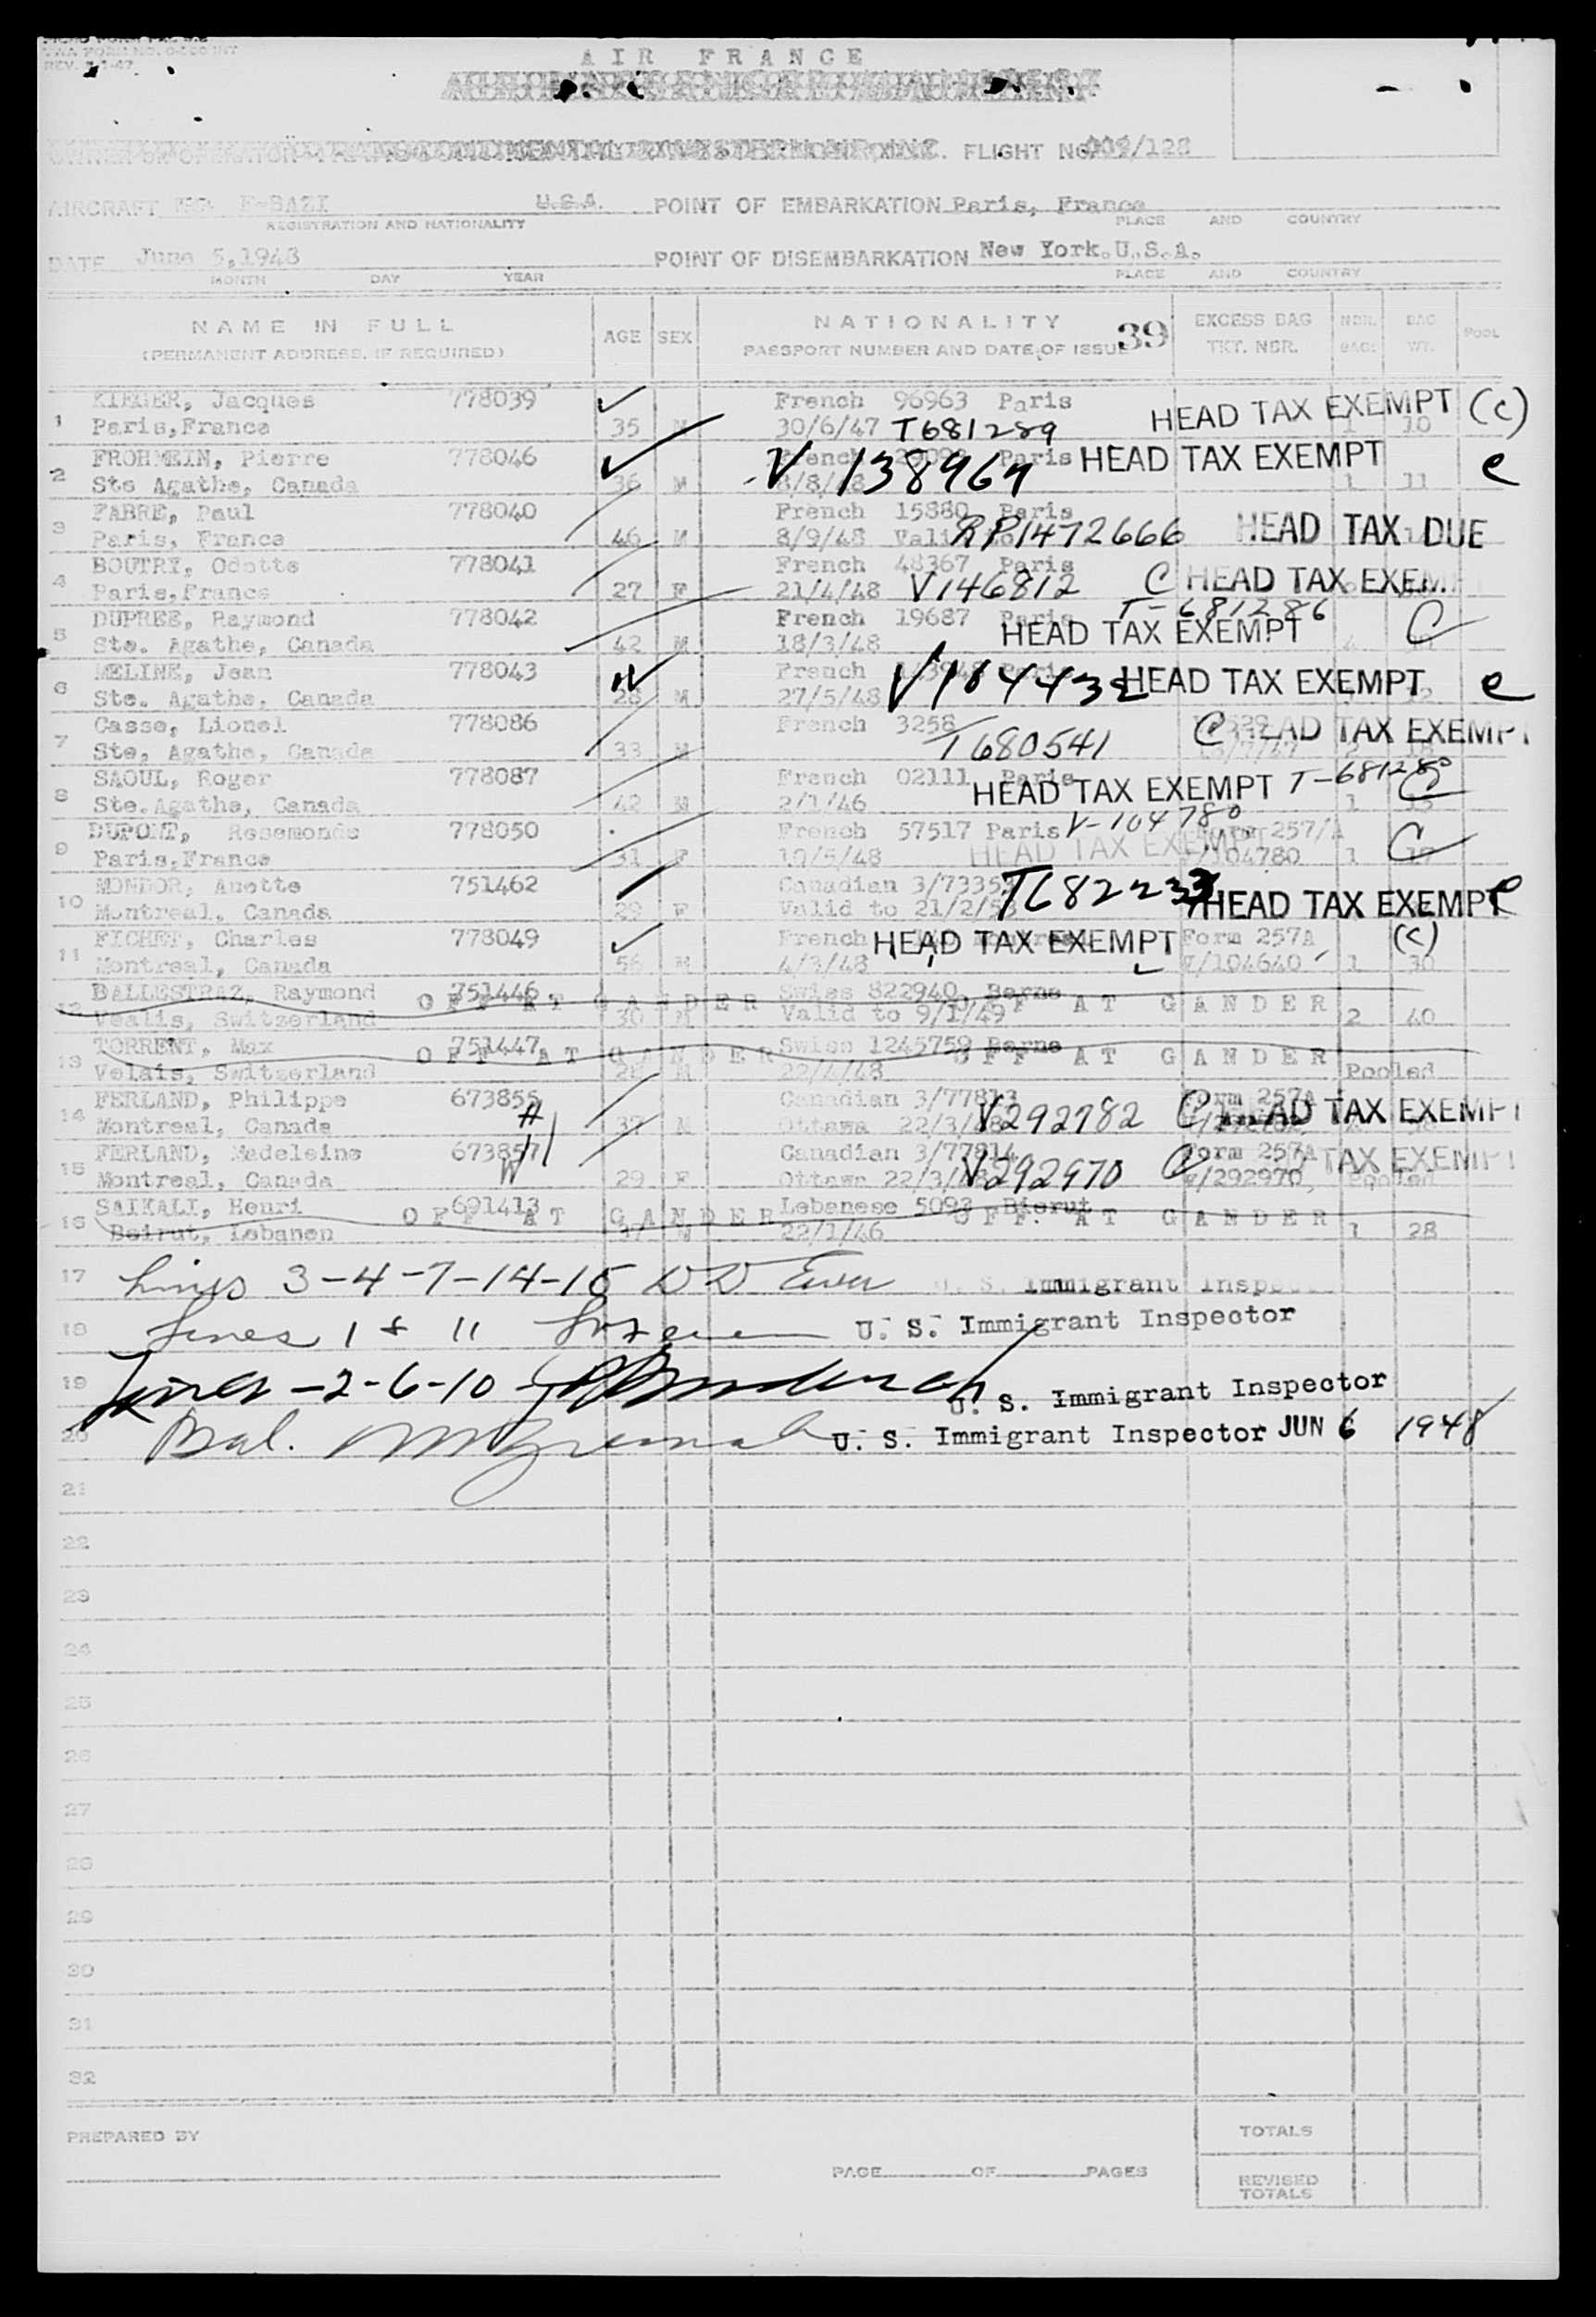 REV. 7-1-47
AIR FRANCE
FLIGHT NO. 009/128
AIRCRAFT F-BAZI U.S.A. POINT OF EMBARKATION Paris, France
REGISTRATION AND NATIONALITY PLACE AND COUNTRY
DATE June 5,1948 POINT OF DISEMBARKATION New York.U.S.A.
MONTH DAY YEAR PLACE AND COUNTRY
NAME IN FULL AGE SEX NATIONALITY 39 EXCESS BAG NBR. BAG POOL
(PERMANENT ADDRESS, IF REQUIRED) PASSPORT NUMBER AND DATE OF ISSUE TKT. NBR. BAGS WT.
1 Jacques 778039 French 96963 Paris HEAD TAX EXEMPT (c)
Paris,France 35 M 30/6/47 T681289 1 10
2 Pierre 778046 French Paris HEAD TAX EXEMPT c
Ste Agathe, Canada 36 M 8/8/48 V 138967 1 11
3 FABRE, Paul 778040 French 15880 Paris HEAD TAX DUE
Paris, France 46 M 8/9/48 RP1472666
4 BOUTRY, Odette 778041 French 48367 Paris
Paris,France 27 F 21/4/48 V146812 C HEAD TAX EXEM
5 DUPREE, Raymond 778042 French 19687 Paris T-681286
Ste. Agathe, Canada 42 M 18/3/48 HEAD TAX EXEMPT C
6 MELINE, Jean 778043 French
Ste. Agathe, Canada 28 M 27/5/48 V184432 HEAD TAX EXEMPT 12 c
7 Casse, Lionel 778086 French 3258 C HEAD TAX EXEMPT
Ste, Agathe, Canada 33 M T680541
8 SAOUL, Roger 778087 French 02111 Paris T-681280
Ste.Agathe, Canada 42 M 2/1/46 HEAD TAX EXEMPT 1 C
9 DUPONT, Rosemonde 778050 French 57517 Paris V-104780 Form 257/A
Paris,France 31 F 10/5/48 HEAD TAX EXEMPT 104780 1 C
10 MONDOR, Anette 751462 Canadian 3/73353 T682233
Montreal, Canada 29 F Valid to 21/2/53 HEAD TAX EXEMPT
11 FICHET, Charles 778049 French HEAD TAX EXEMPT Form 257A (c)
Montreal, Canada 56 M 4/3/48 V/104640 1 30
12 BALLESTRAZ, Raymond 751446 OFF AT GANDER Swiss 822940 Berne OFF AT GANDER
Switzerland 30 M Valid to 9/1/49 2 40
13 TORRENT, Max 751447 OFF AT GANDER Swiss 1245759 Berne OFF AT GANDER
Velais, Switzerland 28 M 22/4/48 Pooled
14 FERLAND, Philippe 673855 Canadian Form 257A
Montreal, Canada 37 M Ottawa 22/3/48 V292782 C HEAD TAX EXEMPT
15 FERLAND, Madeleine 673857 Canadian 3/77814 C Form 257A TAX EXEMPT
Montreal, Canada 29 F Ottawa 22/3/48 V292970 V/292970 Pooled
16 SAIKALI, Henri 691413 OFF AT GANDER Lebanese 5093 Bierut OFF AT GANDER
Beirut, Lebanon M 22/1/46 1 28
17 Lines 3-4-7-14-15 U. S. Immigrant Inspector
18 Lines 1 & 11 U. S. Immigrant Inspector
19 Lines -2-6-10 U. S. Immigrant Inspector
20 Bal. U. S. Immigrant Inspector JUN 6 1948
21
22
23
24
25
26
27
28
29
30
31
32
PREPARED BY TOTALS
PAGE OF PAGES REVISED
TOTALS